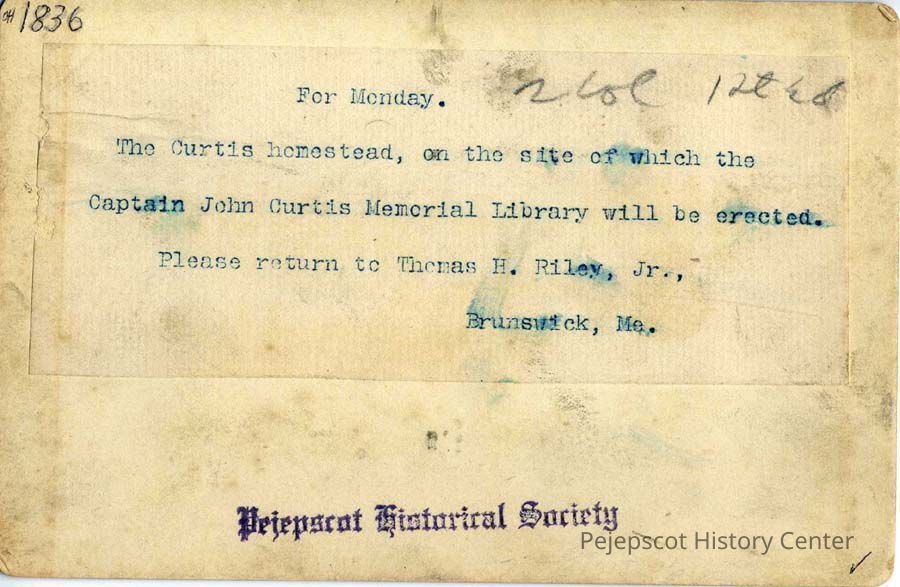 OH 1836
For Monday.
2 col
The Curtis homestead, on the site of which the
Captain John Curtis Memorial Library will be erected.
Please return to Thomas H. Riley, Jr.,
Brunswick, Me.
Pejepscot Historical Society
Pejepscot History Center